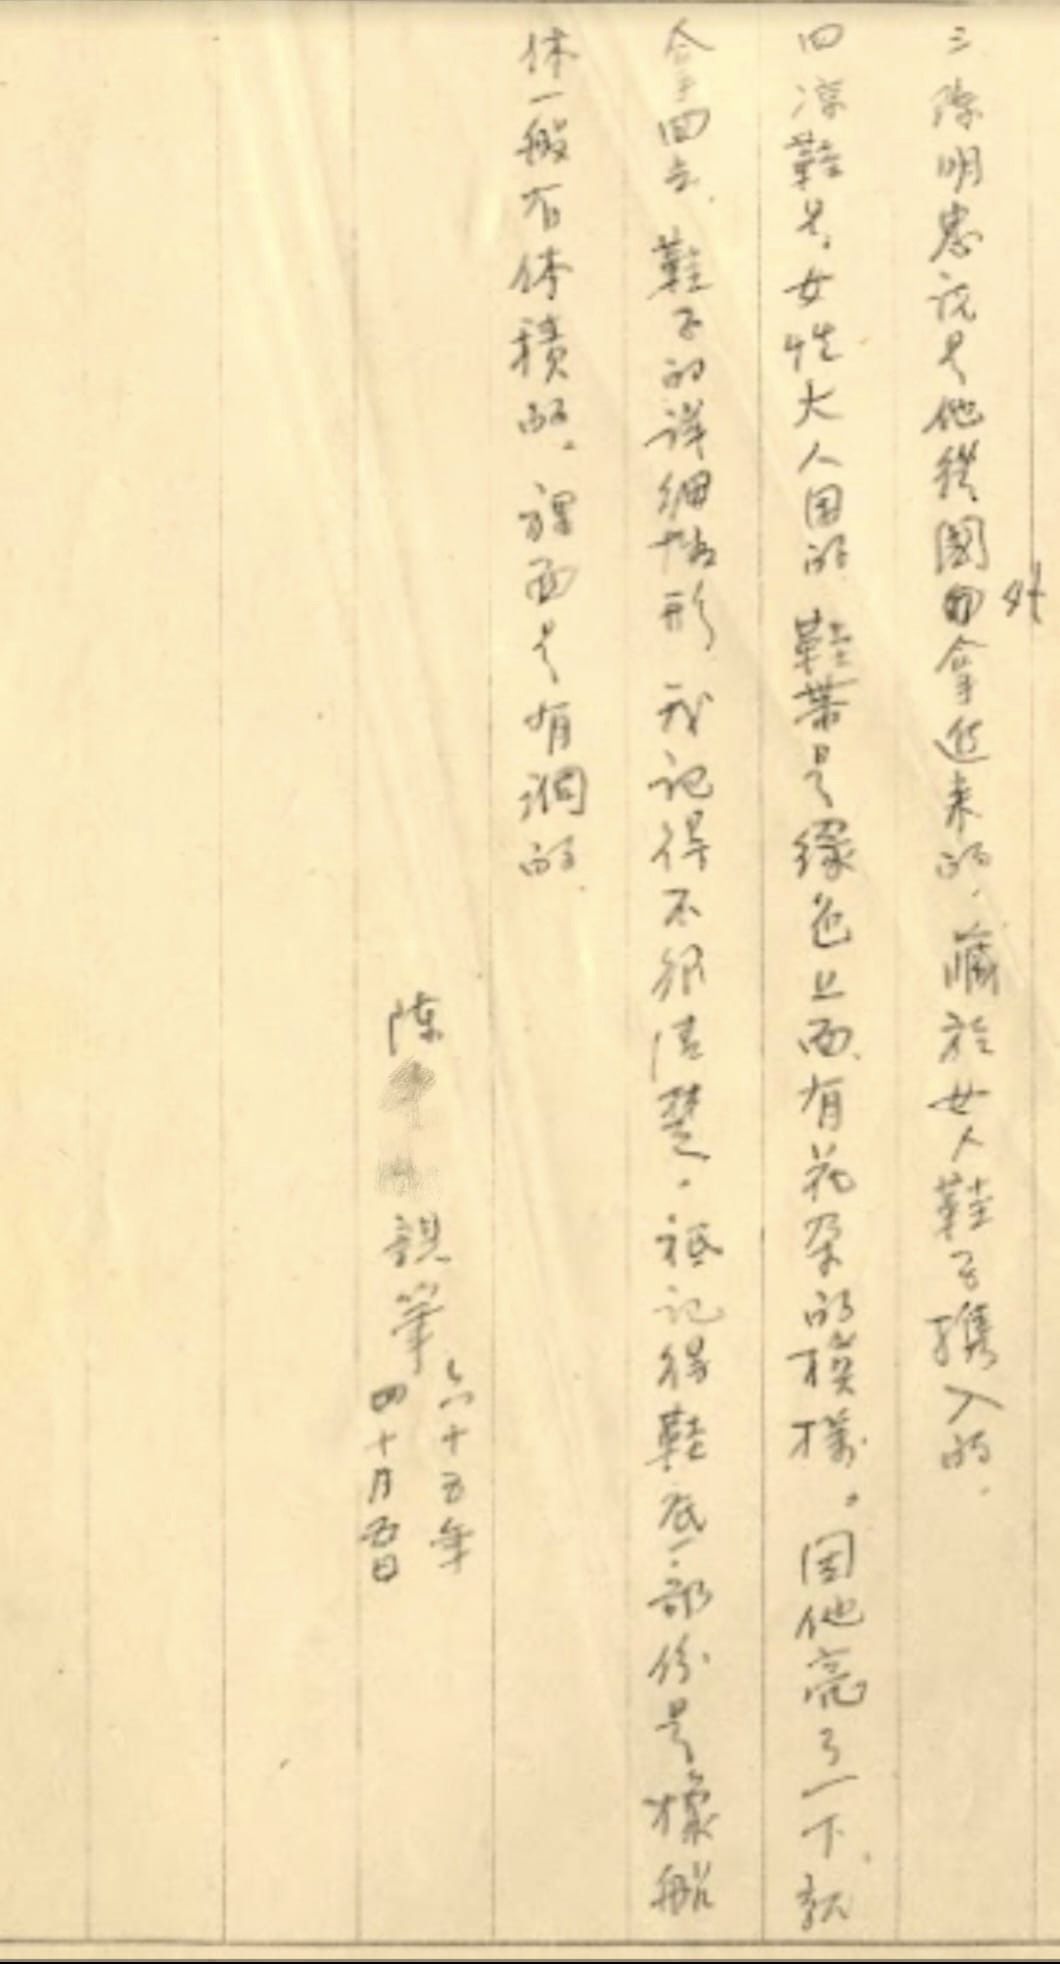 三、陳明忠說是他從國外拿進來的，藏於女人鞋子攜入的。
四、涼鞋是女性大人用的，鞋帶是綠色上面有花朵的模樣。因他亮了一下，就
拿回去，鞋子的詳細情形，我記得不很清楚。祗記得鞋底部份是橡船
体一般有体積的。裡面是有洞的。
陳
親筆
六十五年
四十月五日